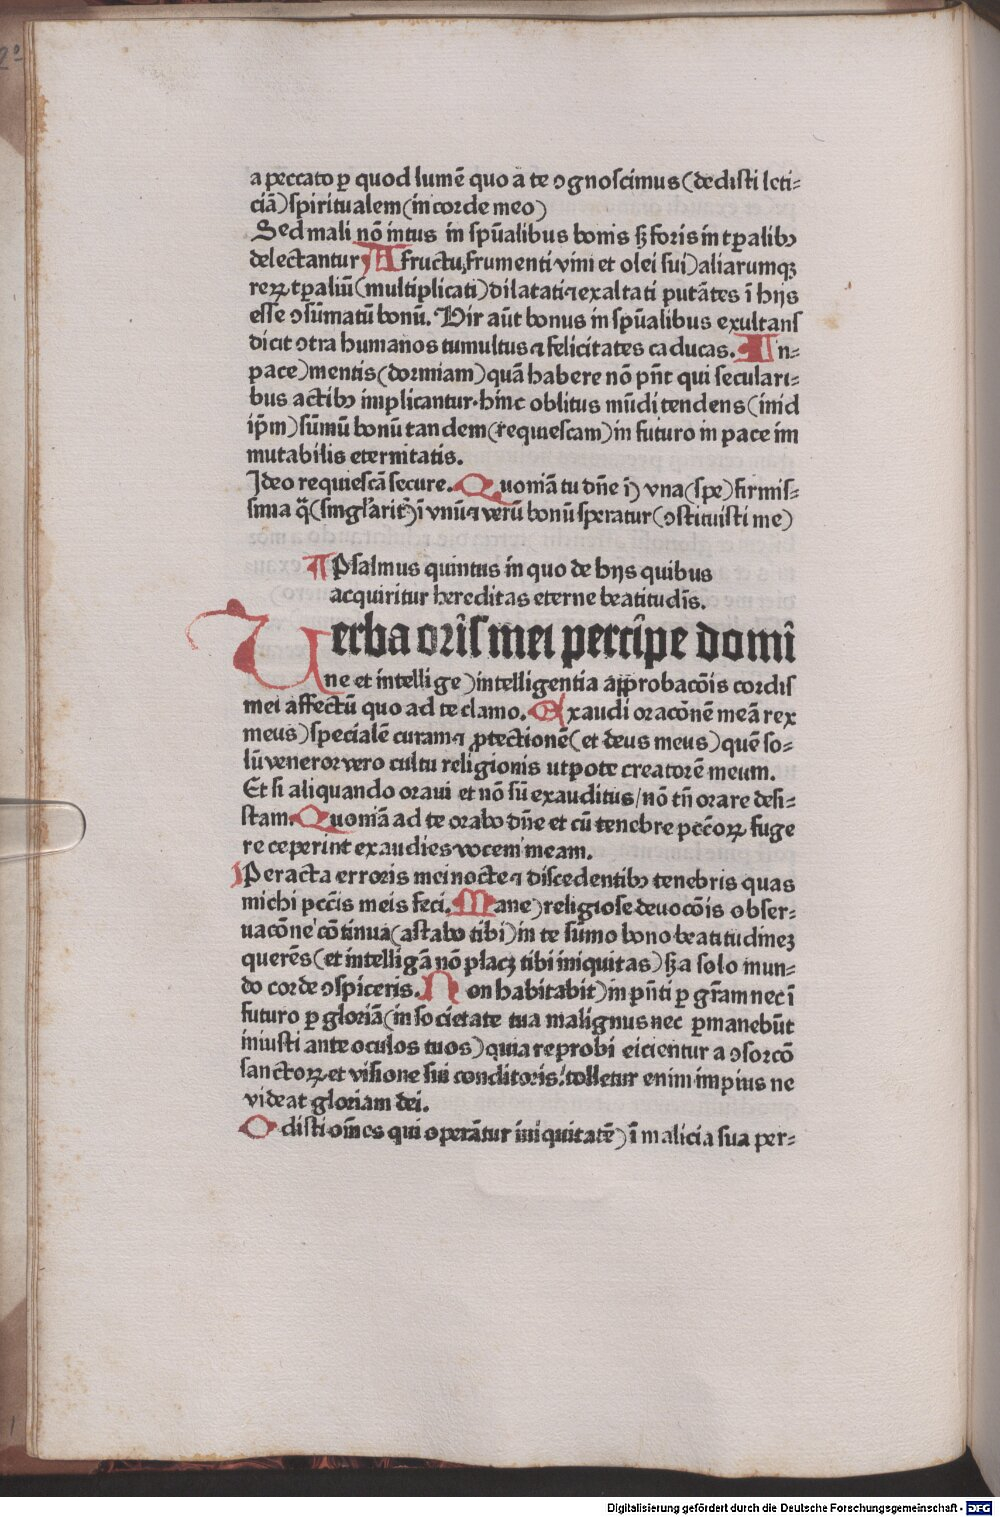 a peccato ꝑ quod lumē quo a te ↄgnoscimus (dedisti leti-
ciā) spiritualem (in corde meo)
Sed mali nō intus in spūalibus bonis sꝫ foris in tꝑalibꝫ
delectantur A fructu, frumenti vini et olei sui) aliarumqꝫ
reꝝ tꝑaliū (multiplicati) dilatati ⁊ exaltati putātes ī hijs
esse ↄsūmatū bonū. Vir aūt bonus in spūalibus exultans
dicit ↄtra humanos tumultus ⁊ felicitates caducas. In-
pace) mentis (dormiam) quā habere nō pn̄t qui seculari-
bus actibꝫ implicantur. hinc oblitus mūdi tendens (in id
ip̄m) sūmū bonū tandem (requiescam) in futuro in pace im
mutabilis eternitatis.
Ideo requiescā secure. Quoniā tu dn̄e ī) vna (spe) firmis-
sima q̄ (singl'arit') ī vnū ⁊ verū bonū speratur (ↄstituisti me)
Psalmus quintus in quo de hijs quibus
acquiritur hereditas eterne beatitudis̄.
Verba orīs mei percīpe domī
ne et intellige) intelligentia approbacōis cordis
mei affectū quo ad te clamo. Exaudi oracōnē meā rex
meus) specialē curam ⁊ ꝓtectionē (et deus meus) quē so-
lū veneror vero cultu religionis utpote creatorē meum.
Et si aliquando oraui et nō sū exauditus / nō tn̄ orare desi-
stam. Quoniā ad te orabo dn̄e et cū tenebre pcc̄oꝝ fuge
re ceperint exaudies vocem meam.
Peracta erroris mei nocte ⁊ discedentibꝫ tenebris quas
michi pcc̄is meis feci. Mane) religiose deuocōis obser-
uacōne cōtinua (astabo tibi) in te sūmo bono beatitudinez
querēs (et intelligā nō placꝫ tibi iniquitas) sꝫ a solo mun-
do corde ↄspiceris. Non habitabit) in pn̄ti ꝑ gr̄am nec ī
futuro ꝑ gloriā (in societate tua malignus nec ꝑmanebūt
iniusti ante oculos tuos) quia reprobi eicientur a ↄsorcō
sanctoꝝ et visione sui conditoris. tolletur enim impius ne
videat gloriam dei.
Odisti om̄es qui operātur iniquitatē) ī malicia sua per-
Digitalisierung gefördert durch die Deutsche Forschungsgemeinschaft - DFG